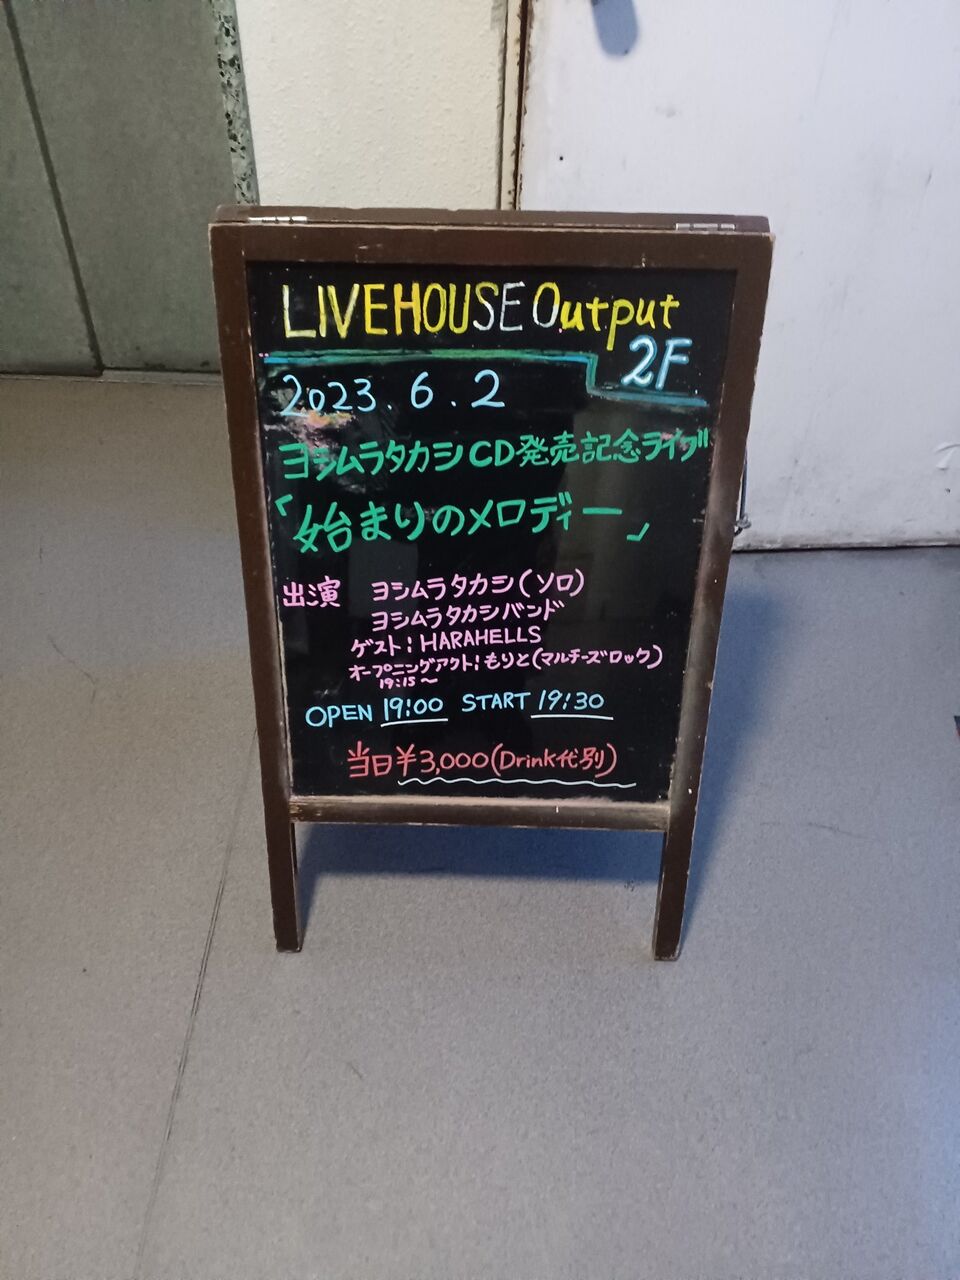 LIVEHOUSE Output
2F
2023.6.2
ヨシムラタカシCD発売記念ライブ
「始まりのメロディー」
出演 ヨシムラタカシ(ソロ)
ヨシムラタカシバンド
ゲスト:HARAHELLS
オープニングアクト:もりと(マルチーズロック)
19:15〜
OPEN 19:00 START 19:30
当日¥3,000(Drink代別)